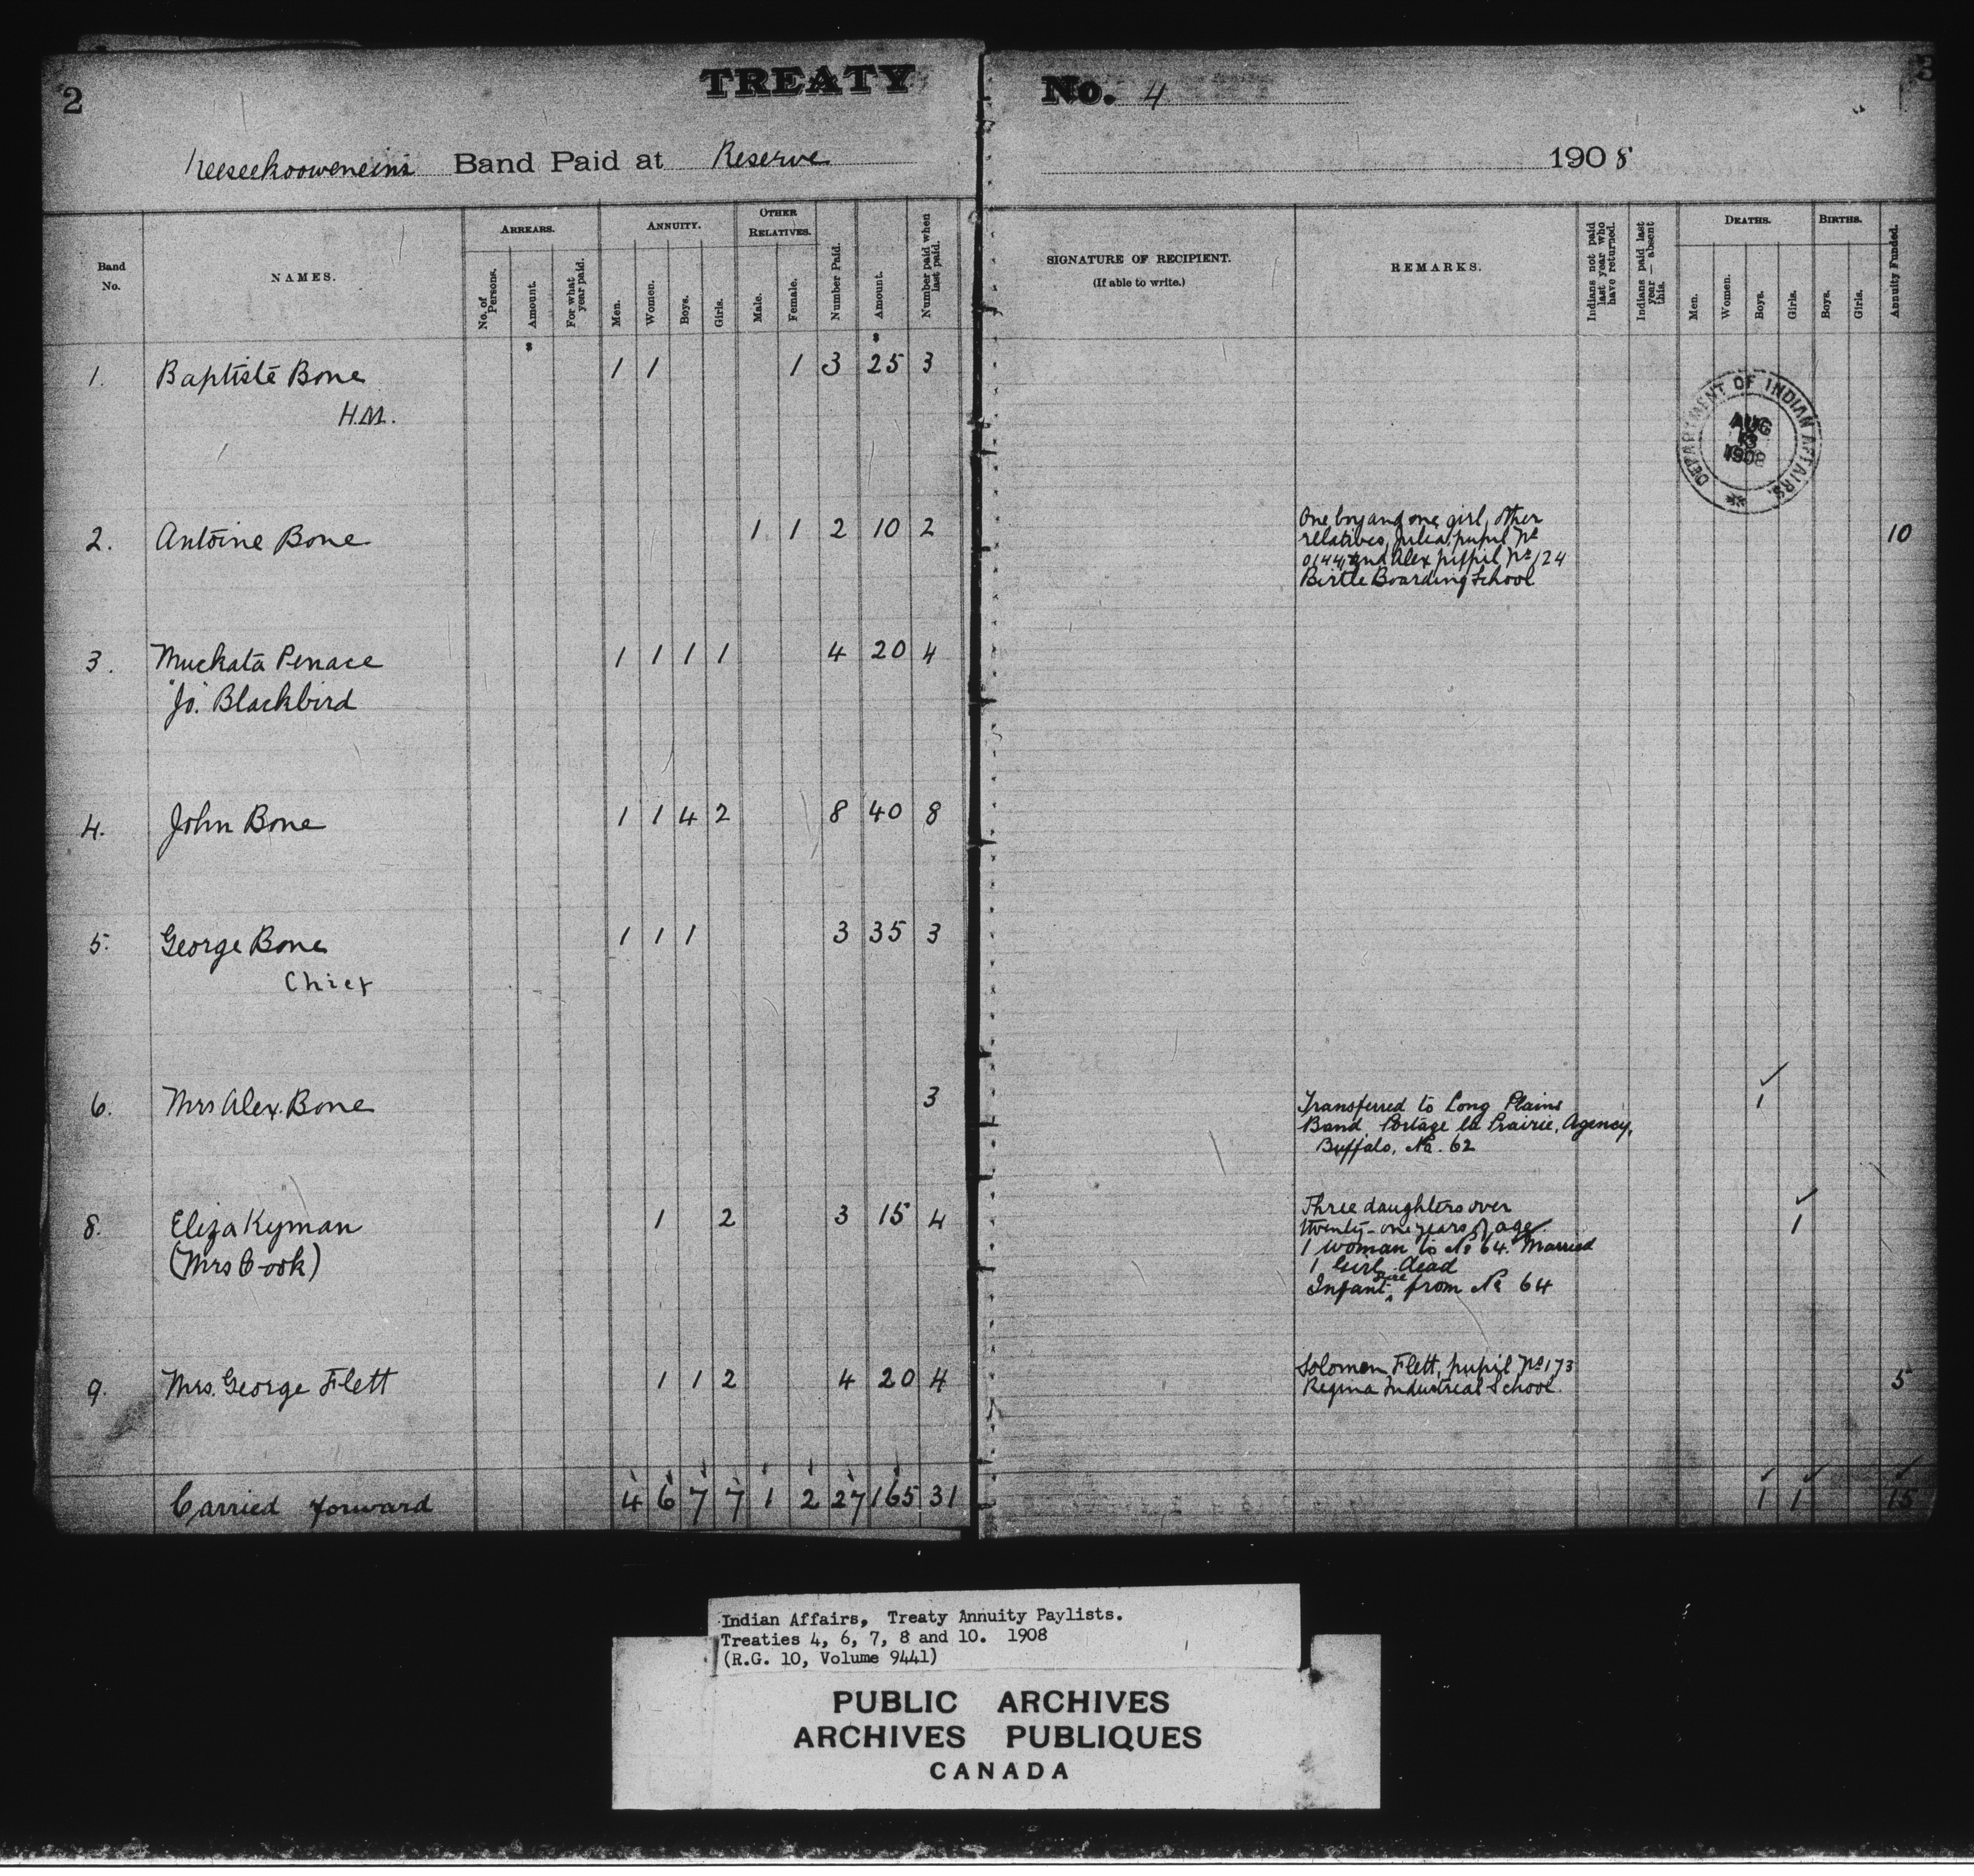 2 TREATY No. 4 3
Keeseekooweneins Band Paid at Reserve 1908
Band No. NAMES. ARREARS. No. of Persons. Amount. For what year paid. ANNUITY. Men. Women. Boys. Girls. OTHER RELATIVES. Male. Female. Number Paid. Amount. Number paid when last paid. SIGNATURE OF RECIPIENT. (If able to write.) REMARKS. Indians not paid last year who have returned. Indians paid last year — absent this. DEATHS. Men. Women. Boys. Girls. BIRTHS. Boys. Girls. Annuity Funded.
$ $
1. Baptiste Bone 1 1 1 3 25 3
H.M.
DEPARTMENT OF INDIAN AFFAIRS.
AUG
13
1908
2. Antoine Bone 1 1 2 10 2 10
One boy and one girl, other
relatives, Julia, pupil No
0144, and Alex pupil No 124
Birtle Boarding School
3. Muckata Penace 1 1 1 1 4 20 4
"Jo." Blackbird
4. John Bone 1 1 4 2 8 40 8
5. George Bone 1 1 1 3 35 3
Chief
6. Mrs Alex. Bone 3 ✓ 1
Transferred to Long Plains
Band Portage la Prairie, Agency,
Buffalo, No. 62
8. Eliza Kyman 1 2 3 15 4 ✓ 1
(Mrs Cook)
Three daughters over
twenty-one years of age.
1 woman to No 64. Married
1 Girl dead
Infant from No 64
9. Mrs. George Flett 1 1 2 4 20 4 5
Solomon Flett, pupil No 173
Regina Industrial School.
Carried forward 4 6 7 7 1 2 27 165 31 1 1 15
Indian Affairs, Treaty Annuity Paylists.
Treaties 4, 6, 7, 8 and 10. 1908
(R.G. 10, Volume 9441)
PUBLIC ARCHIVES
ARCHIVES PUBLIQUES
CANADA